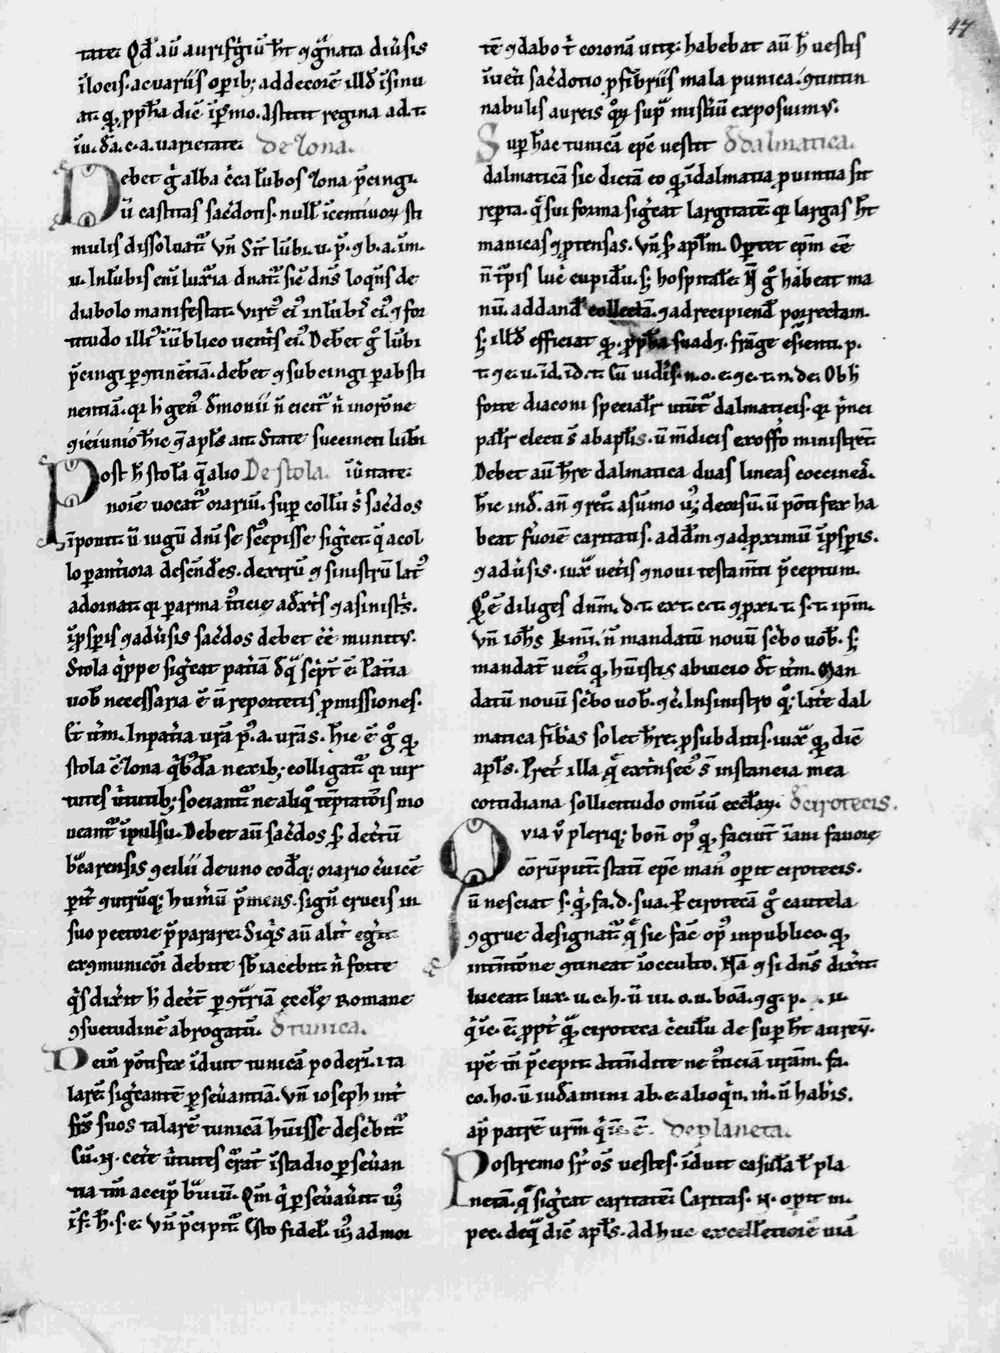 47
tate. Qđ aū aurifᵍiū ħt ꝯgͣnata diūsis
ī locis. ac uariis opib; ad decorē illđ ī sinu
at. qͥ ꝓpħa diē ip̄mo. Astitit regina a d. t.
ī u. đa. c. a. uarietate. de zona.
Debet ġ alba cͥca lūbos zona p̄cingi.
ū castitas sac̄dotis. null̄ īcentiuoꝝ sti
mulis dissoluatᷣ. Vn̄ Sīt lūbi. u. p̄. ꝯ b. a. īm.
u. In lūbis eni luxͥia dn̄atᷣ sic̄ dn̄s loq̄ns de
diabolo manifestat. Virtꝰ eiꝰ in lūbͥ eiꝰ. ꝯ for
titudo illiꝰ ī ūblico uent̄s eiꝰ. Debet ġ lūbi
p̄cingi ꝑ ꝯtinētiā. debet ꝯ subcingi ꝑ absti
nentiā. qͥ ħ genꝰ đmonii n̄ eicitᷣ n̄ in orōne
ꝯ ieiunio. ħ īc q̄ apl̄s ait. State succincti lūbi
Post ħ stol̄a q̄ alio De stola. ī ūitate.
noīe uocatᷣ orariū. sup collū s̄ sac̄dos
īponit. ū iugū dn̄i se scēpisse sigͥcet. q̄ a col
lo ꝑ ant̄iora descēdēs. dextrū ꝯ sinistrū latꝰ
adornat. qͥ ꝑ arma iͭticie a dxͭis ꝯ a sinistͥs.
ī ꝓspis ꝯ adūsis sac̄dos debet ēē munitꝰ.
Stola qͥppe sigͥcat patīā đ q̄ sc̄pt̄ ē. Patīa
uob̄ necessaria ē ū reportetis ꝓmissiones.
Et it̄m. In patīa ur̄a p̄. a. ur̄as. ħ īc ē ġ qͥ
stola c̄ zona qͥbđa nexib; colligatᷣ. qͥ uir
tutes ūtutib; sociantᷣ ne aliqͦ tēptatōis mo
ueantᷣ īpulsu. Debet aū sac̄dos s̄ dec̄tū
bͣcarensis ꝯcilii de uno eodq; orario c̄uicē
pit̄ ꝯ utrūq; humerū p̄mens. signū crucis in
suo pectore p̄parare. Siqͥs aū alit̄ eḡit
excꝯmunicōi debite sb̄iacebit. n̄ forte
qͥs dixīt ħ dec̄t̄ ꝑ ꝯtͣriā ęccl̄ę romane
ꝯsuetudinē abrogatū. đ tunica.
Dein̄ pōtifex īduit tunicā poderē. i. ta
larē. sigͥcantē ꝑseūantiā. Vn̄ ioseph int̄
fr̄s suos talarē tunicā hūisse desc̄bitᷣ.
Cū. n̄. cet̄e ūtutes c̄rāt ī stadio ꝑseūan
tia tm̄ accip̄ bͣuiū. Qm̄ qͥ ꝑseūaūit uꝫ
ī f. ħ. s. e. Vn̄ p̄cipitᷣ Esto fidel̄. uꝫ ad mor
tē ꝯ dabo t̄ coronā uitę. habebat aū ħ uestis
ī ueti sac̄dotio ꝓ fībriis mala punica. ꝯ tintin
nabulis aureis. qͦꝝ supͣ mist̄iū exposuimꝰ.
Sup hāc tunicā epc̄ uestit đ dalmatica.
dalmaticā sic dictā eo qͥ ī dalmatia ꝓuintia sit
reꝑta. q̄ sui forma sigͥcat largitatē. qͥ largas ħt
manicas ꝯ ꝓtensas. Vn̄ s̄ apl̄m. Oportet epm̄ ēē
n̄ tͥpis luc̄ cupidū. s; hospitalē. N̄ ġ habeat ma
nū. ad dandū collectā. ꝯ ad recipiend̄ porrectam.
s; illđ efficiat qͥ ꝓpħa suadꝫ. frāge esīenti. p.
t. ꝯ e. u. īd. īd. t. Cū uidis. n. o. e. ꝯ c. t. n. de. Ob h̄
forte diaconi specialr̄ utūtᷣ dalmaticis. qͥ p̄nci
palr̄ electi s̄ ab apl̄is. ū m̄dicis ex offo ministrēt.
Debet aū ħre dalmatica duas lineas coccineas.
ħ īc inđ. an̄ ꝯ ret̄ a sūmo uꝫ deorsū. ū pōtifex ha
beat fuorē caritatis. ad d̄m ꝯ ad ꝓximū ī ꝓspis.
ꝯ adūsis. iuxͣ uetͥs ꝯ noui testamti p̄ceptum.
Qđ ē diliges dnm̄. d. t. ex t. c. t. ꝯ ꝓxi. t. s. t. ipm̄.
Vn̄ ioħs kmi. n̄ mandatū nouū sc̄bo uob̄. s;
mandat̄ uetꝰ qͥ hūistis ab inicio. đt it̄m. Man
datū nouū sc̄bo uob̄. ꝯc̄. In sinistro q; lat̄e dal
matica fībͥas solet ħre. ꝓ subditis. iuxͣ qͥ diē
apl̄s. Pret̄ illa q̄ extͥnsecꝰ s̄ instancia mea
cotidiana sollicitudo omīū ecclͣꝝ. đ cirotecis.
Quia ū̄ pleriq; bon̄ opꝰ qͥ faciūt īani fauorę
corūpūt. statī epc̄ manꝰ opit cirotecis.
ū nesciat s. qͥ. fa. d. sua. P̄ cirotecā ġ cautela
ꝯgrue designatᷣ. q̄ sic fac̄ opꝰ in publico. qͥ
intntōne ꝯtineat ī occulto. Nā ꝯ si dn̄s dixīt.
luceat lux. u. c. h. ū ui. o. u. boā. ꝯ g. p. u.
qͥ īc. ē. ꝓpt̄ q̄ ciroteca c̄culū de sup ħt aureū.
ipē tn̄ p̄cepit. Attēdite ne iͭticiā uram̄. fa.
co. ho. ū uiđamini ab. e. alioqͥn. m̄. n̄ habͥs.
ap̄ patrē urm̄ qͥ īc. ē. de planeta.
Postremo sr̄ oēs uestes. īduit casulā ł pla
netā. q̄ sigͥcat caritatē. Caritas. n̄. opit m.
pec. de q̄ diē apl̄s. ad huc excellēciorē uiā